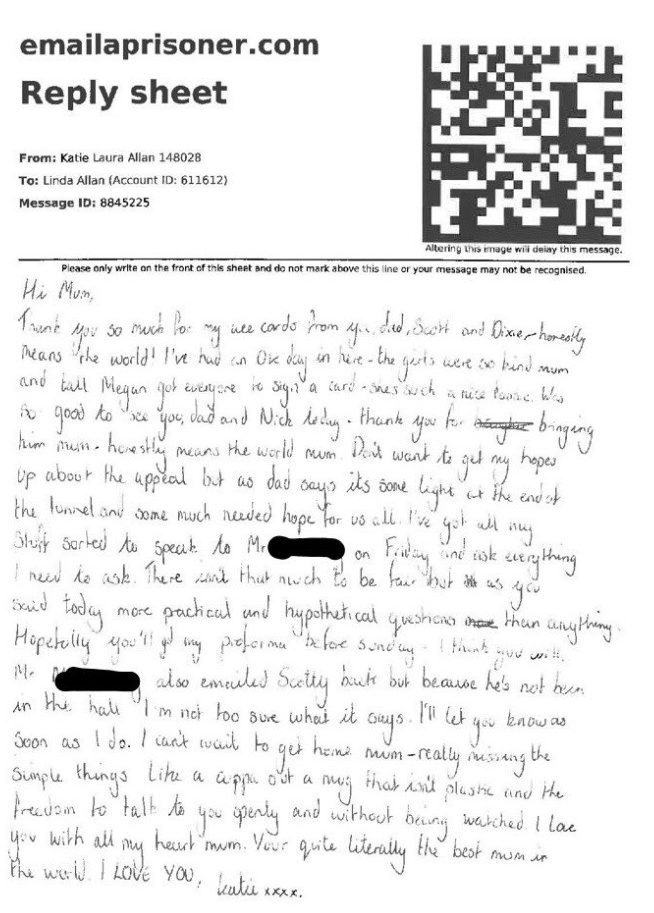 emailaprisoner.com
Reply sheet
From: Katie Laura Allan 148028
To: Linda Allan (Account ID: 611612)
Message ID: 8845225
Altering this image will delay this message.
Please only write on the front of this sheet and do not mark above this line or your message may not be recognised.
Hi Mum,
Thank you so much for my wee cards from you, dad, Scott and Dixie - honestly
means the world! I've had an Ok day in here - the girls were so kind mum
and tall Megan got everyone to sign a card - shes such a nice lassie. Was
so good to see you, dad and Nick today - thank you for bringing
him mum - honestly means the world mum. Don't want to get my hopes
up about the appeal but as dad says its some light at the end of
the tunnel and some much needed hope for us all. I've got all my
stuff sorted to speak to Mr on Friday and ask everything
I need to ask. There isn't that much to be fair but as you
said today more practical and hypothetical questions than anything.
Hopefully you'll get my proforma before sunday - I think you will.
Mr also emailed Scotty back but because he's not been
in the hall I'm not too sure what it says. I'll let you know as
soon as I do. I can't wait to get home mum - really missing the
simple things like a cuppa out a mug that isn't plastic and the
freedom to talk to you openly and without being watched I love
you with all my heart mum. Your quite literally the best mum in
the world. I LOVE YOU, Katie xxxx.